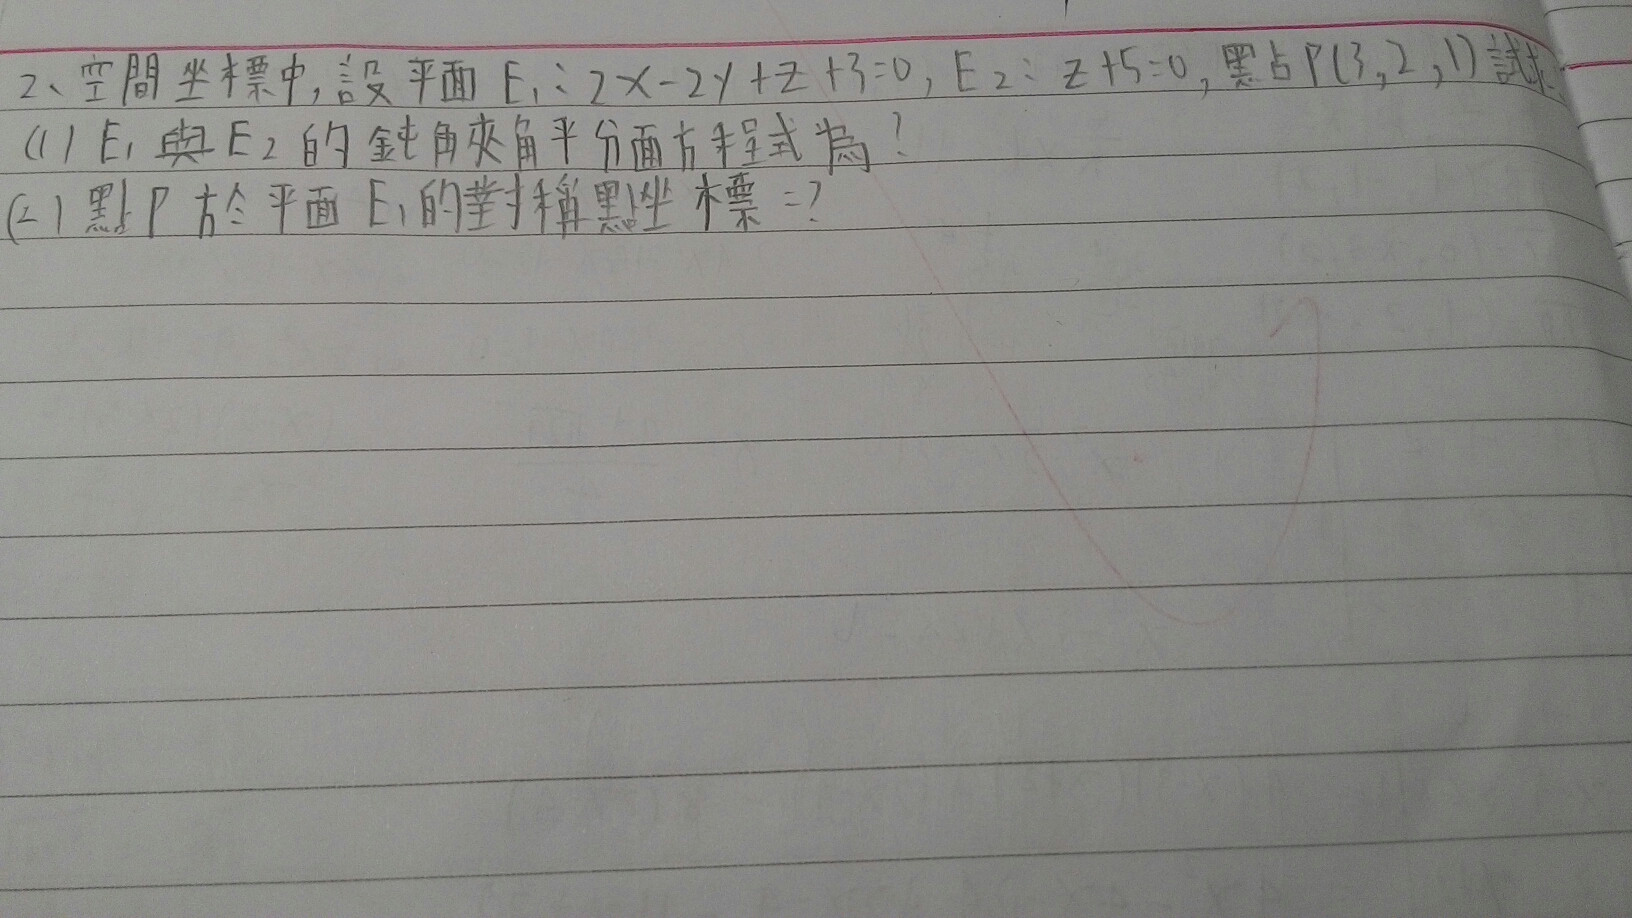 2、空間坐標中,設平面E₁:2x-2y+z+3=0,E₂:z+5=0,點P(3,2,1)試求:
(1)E₁與E₂的鈍角夾角平分面方程式為?
(2)點P於平面E₁的對稱點坐標=?